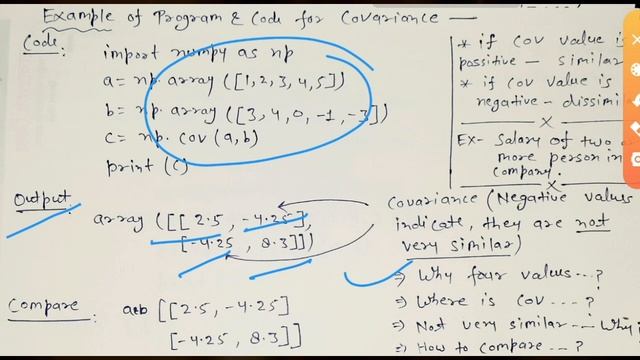 Example of Program & Code for Covariance —
Code:
import numpy as np
a = np. array ([1, 2, 3, 4, 5])
b = np. array ([3, 4, 0, -1, -3])
c = np. cov (a, b)
print (c)
* if cov value is
possitive — similar
* if cov value is
negative — dissimi
x
Ex- Salary of two
more person in
company.
x
Output:
array ([[2.5, -4.25],
[-4.25, 8.3]])
Covariance (Negative values
indicate, they are not
very similar)
⇒ Why four values...?
⇒ Where is cov ....?
⇒ Not very similar -- Why
⇒ How to compare...?
Compare :
[[2.5, -4.25]
[-4.25, 8.3]]